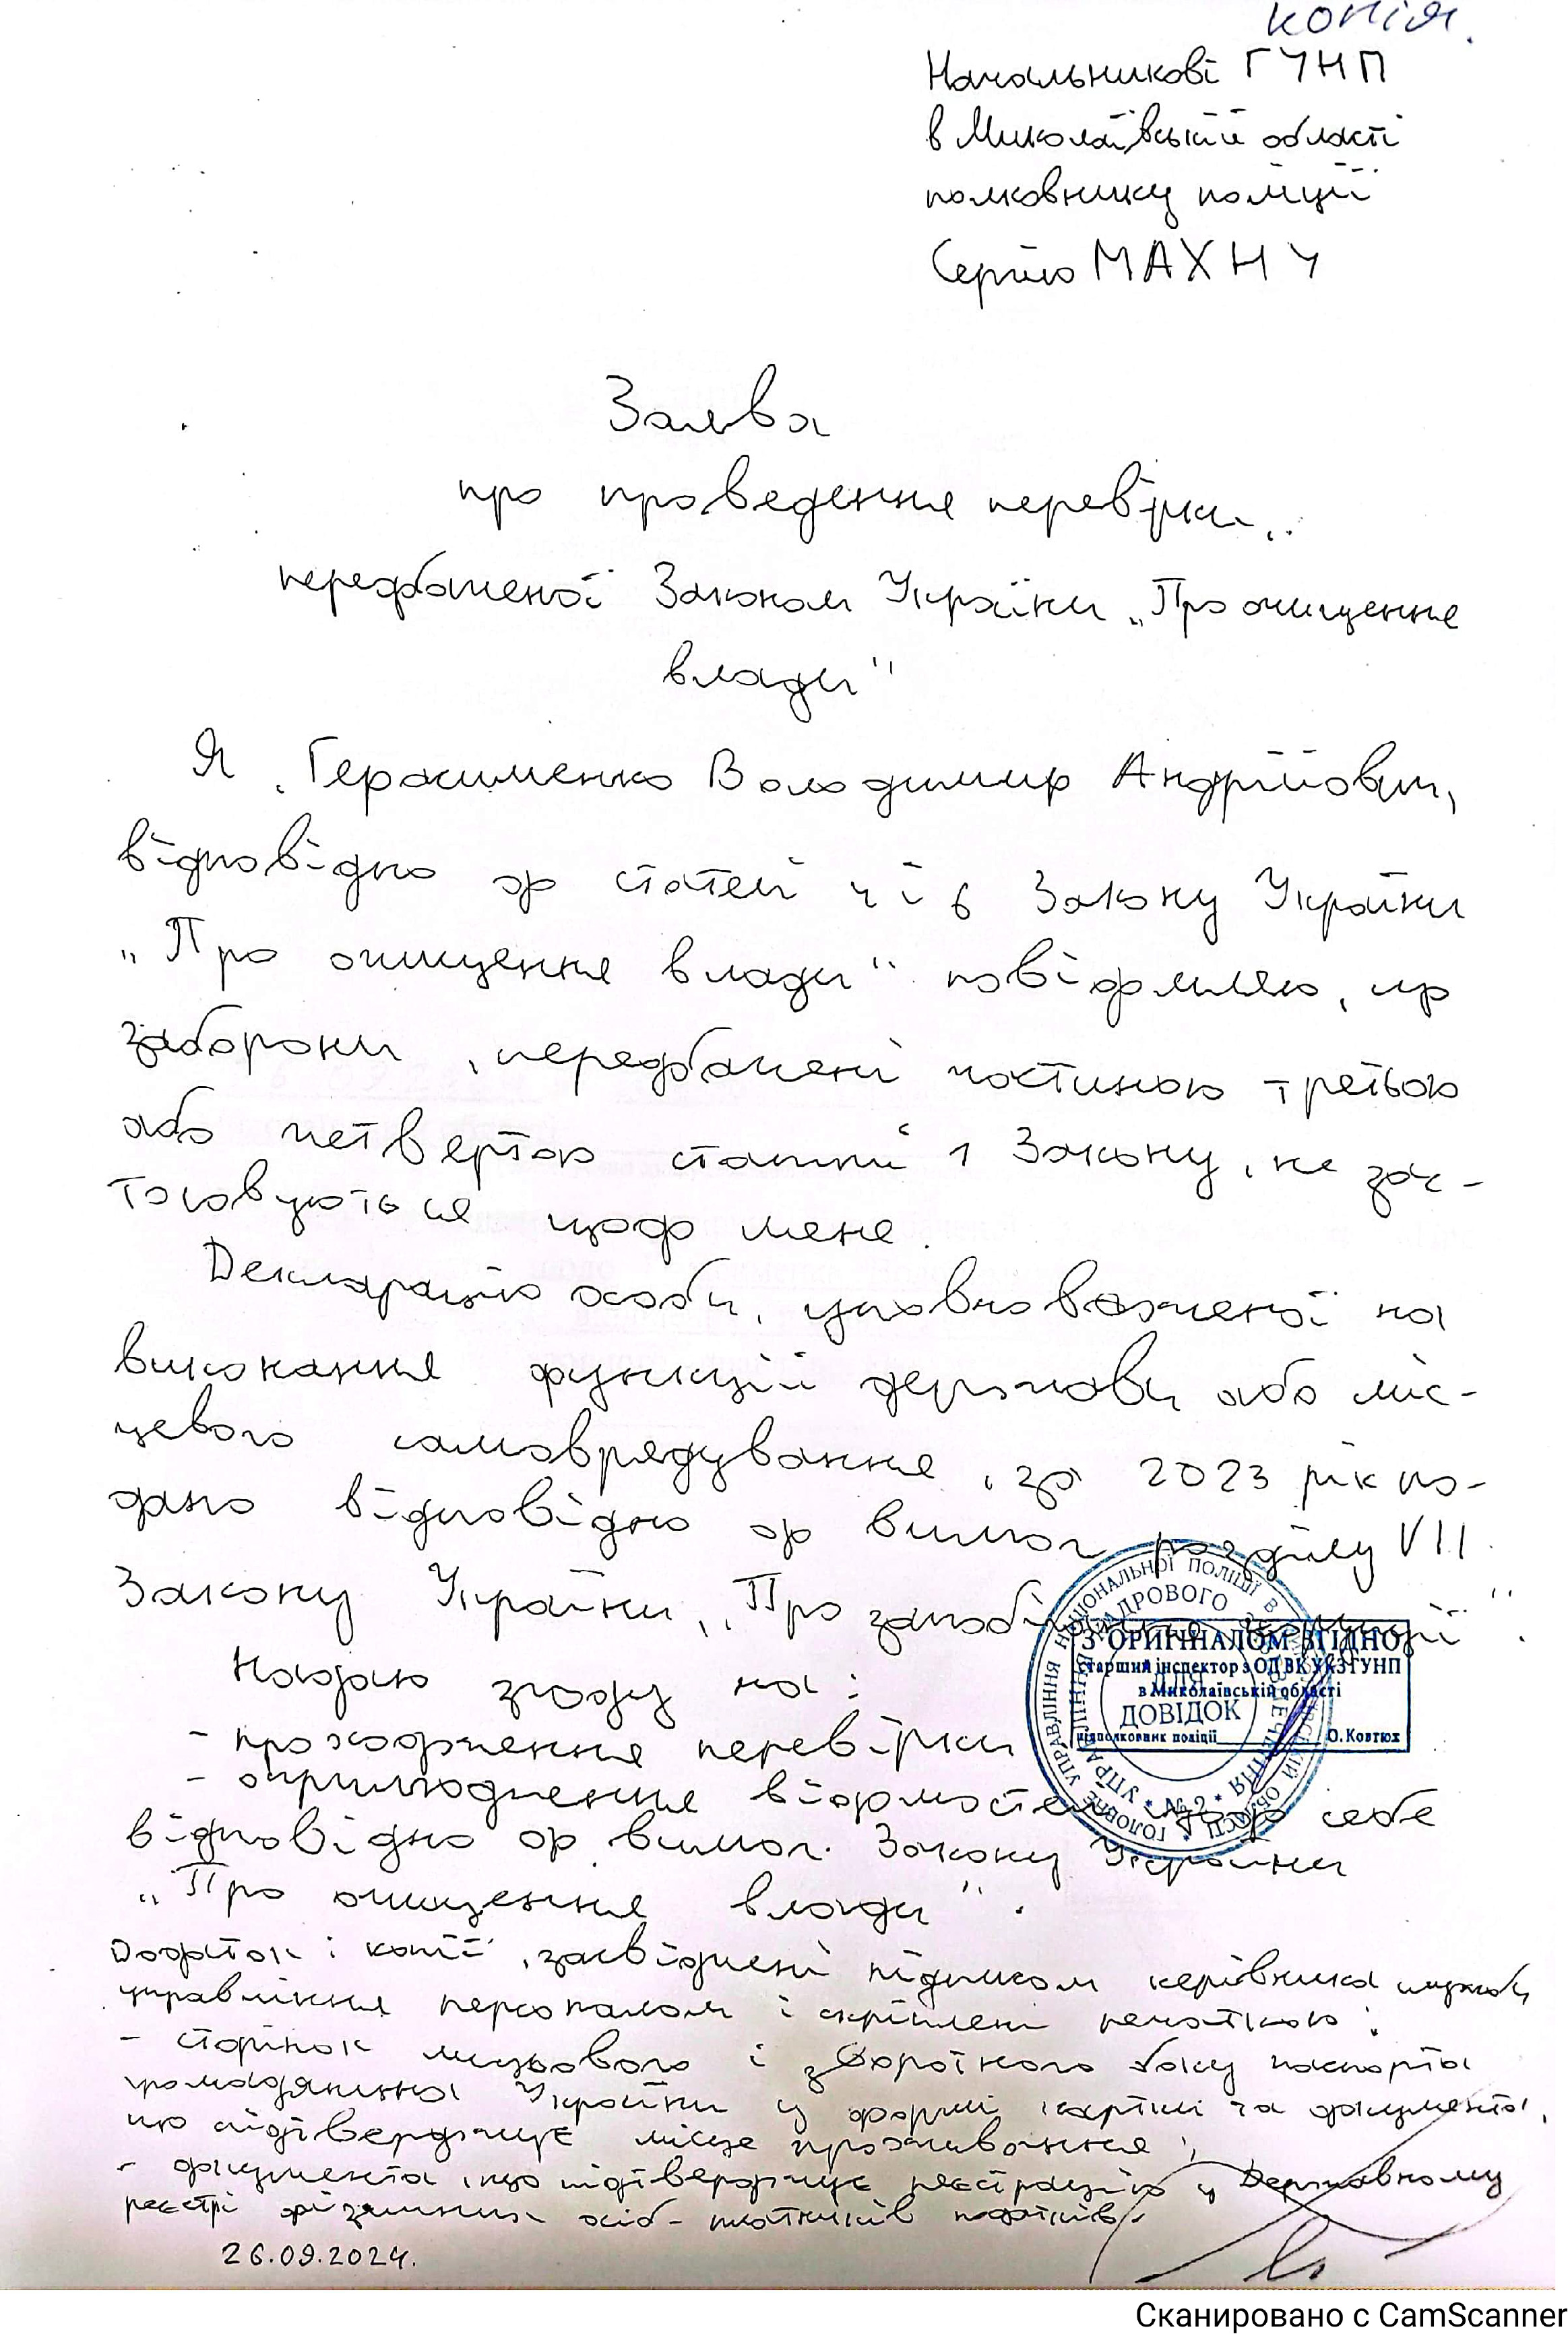 копія.
Начальникові ГУНП
в Миколаївській області
полковнику поліції
Сергію МАХНУ
Заява
про проведення перевірки,
передбаченої Законом України „Про очищення
влади"
Я, Герасименко Володимир Андрійович,
відповідно до статей 4 і 6 Закону України
„Про очищення влади" повідомляю, що
заборони, передбачені частиною третьою
або четвертою статті 1 Закону, не зас-
тосовуються щодо мене.
Декларацію особи, уповноваженої на
виконання функцій держави або міс-
цевого самоврядування, за 2023 рік по-
дано відповідно до вимог розділу VII
Закону України „Про запобігання корупції".
Надаю згоду на:
- проходження перевірки
- оприлюднення відомостей щодо себе
відповідно до вимог Закону України
„Про очищення влади".
Додаток: копії, засвідчені підписом керівника служби
управління персоналом і скріплені печаткою:
- сторінок лицьового і зворотного боку паспорта
громадянина України у формі картки та документа,
що підтверджує місце проживання;
- документа, що підтверджує реєстрацію у Державному
реєстрі фізичних осіб - платників податків.
26.09.2024.
З ОРИГІНАЛОМ ЗГІДНО
старший інспектор з ОД ВК УКЗ ГУНП
в Миколаївській області
підполковник поліції О.Ковтюх
ДЛЯ
ДОВІДОК
* № 2 *
Сканировано с CamScanner